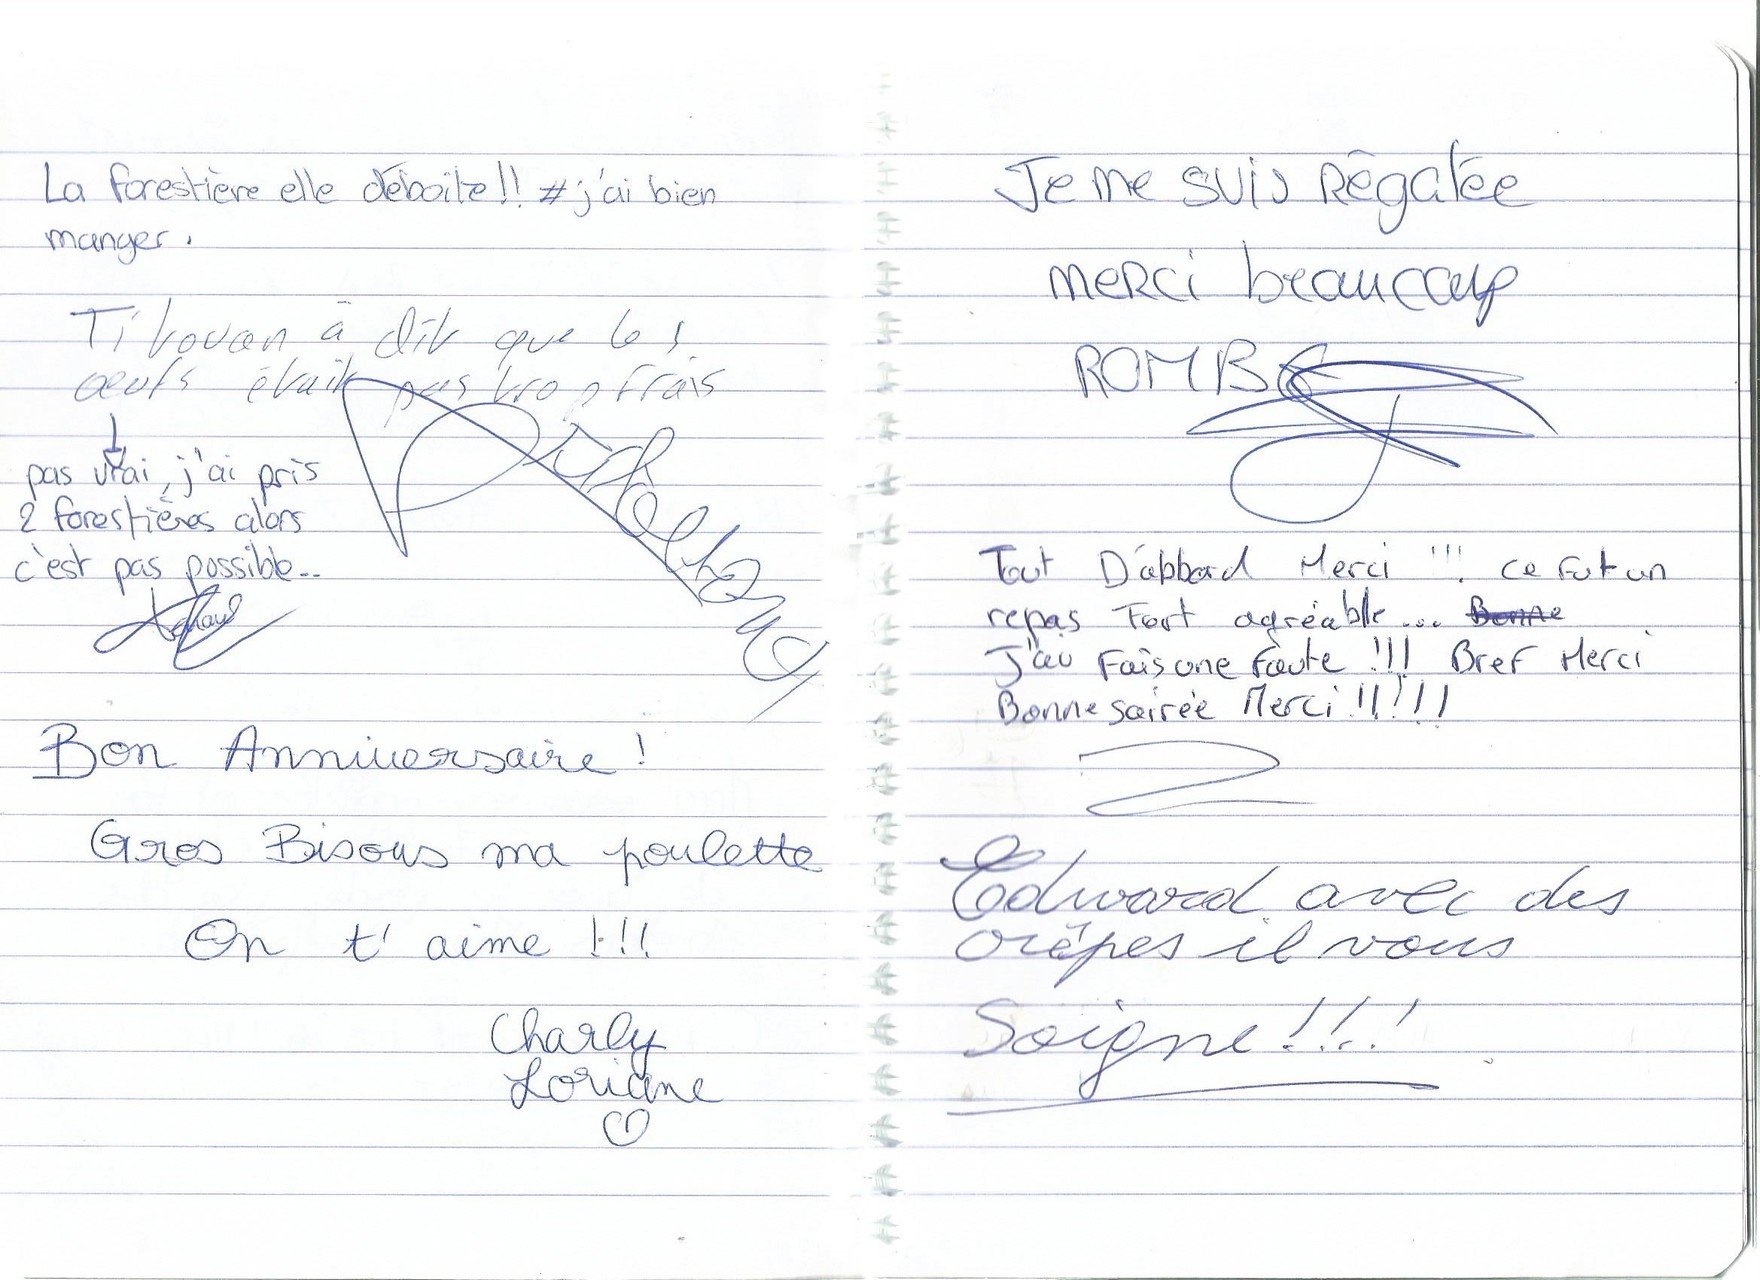 La forestière elle déboite!! #j'ai bien
manger.
Titouan à dit que les
œufs était pas trop frais
pas vrai, j'ai pris
2 forestières alors
c'est pas possible...
Bon Anniversaire !
Gros Bisous ma poulette
On t'aime !!!
Charly
Loriane
Je me suis Régalée
merci beaucoup
ROMB
Tout D'abbord Merci !!! ce fut un
repas Fort agréable... Bonne
J'au Fais une faute !!! Bref Merci
Bonne soirée Merci !!!!!!
Edward avec des
crêpes il vous
Soigne !!!